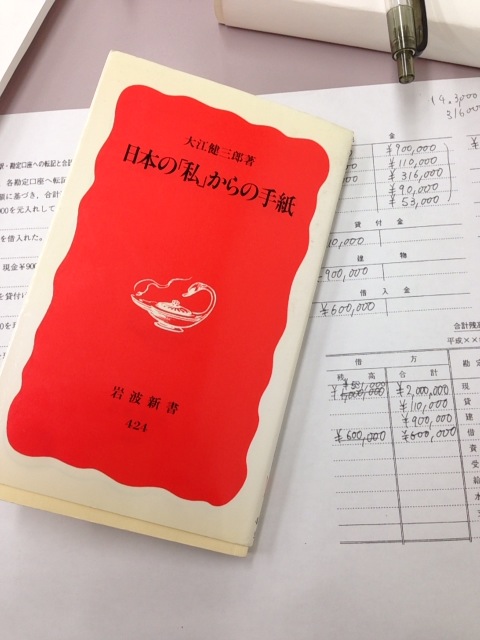 大江健三郎著
日本の「私」からの手紙
岩波新書
424
訳・勘定口座への転記と合計
各勘定口座へ転記
額に基づき、合計
000を元入れして
を借入れた。
現金¥900
を貸付け
316000
金
¥900,000
¥110,000
¥316,000
¥90,000
¥53,000
貸付金
建物
900,000
借入金
¥600,000
合計残高
平成××
借方
勘定
残高
合計
¥2,000,000
現
¥110,000
貸
¥900,000
建
¥600,000
¥600,000
借
資
受
給
水